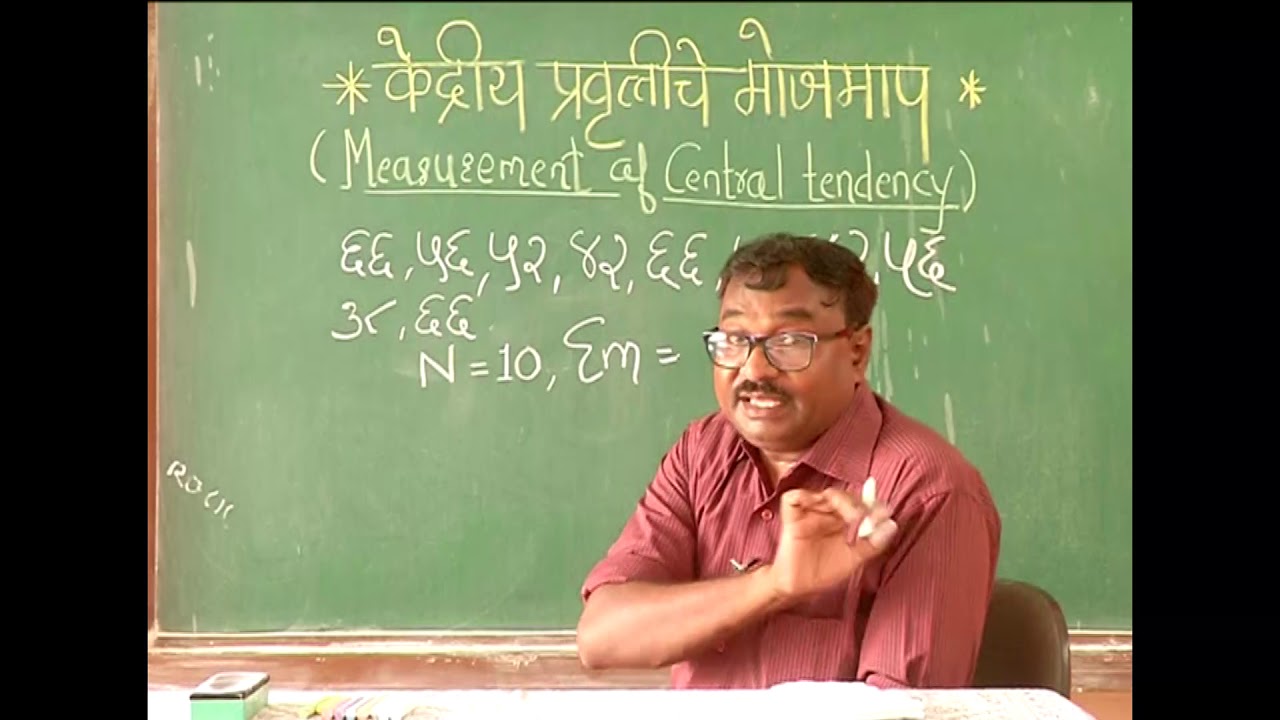 * केंद्रीय प्रवृत्तीचे मोजमाप *
(Measurement of Central tendency)
६६, ५६, ५२, ४२, ६६, ५६
३८, ६६
N = 10, Σm =
ROCK